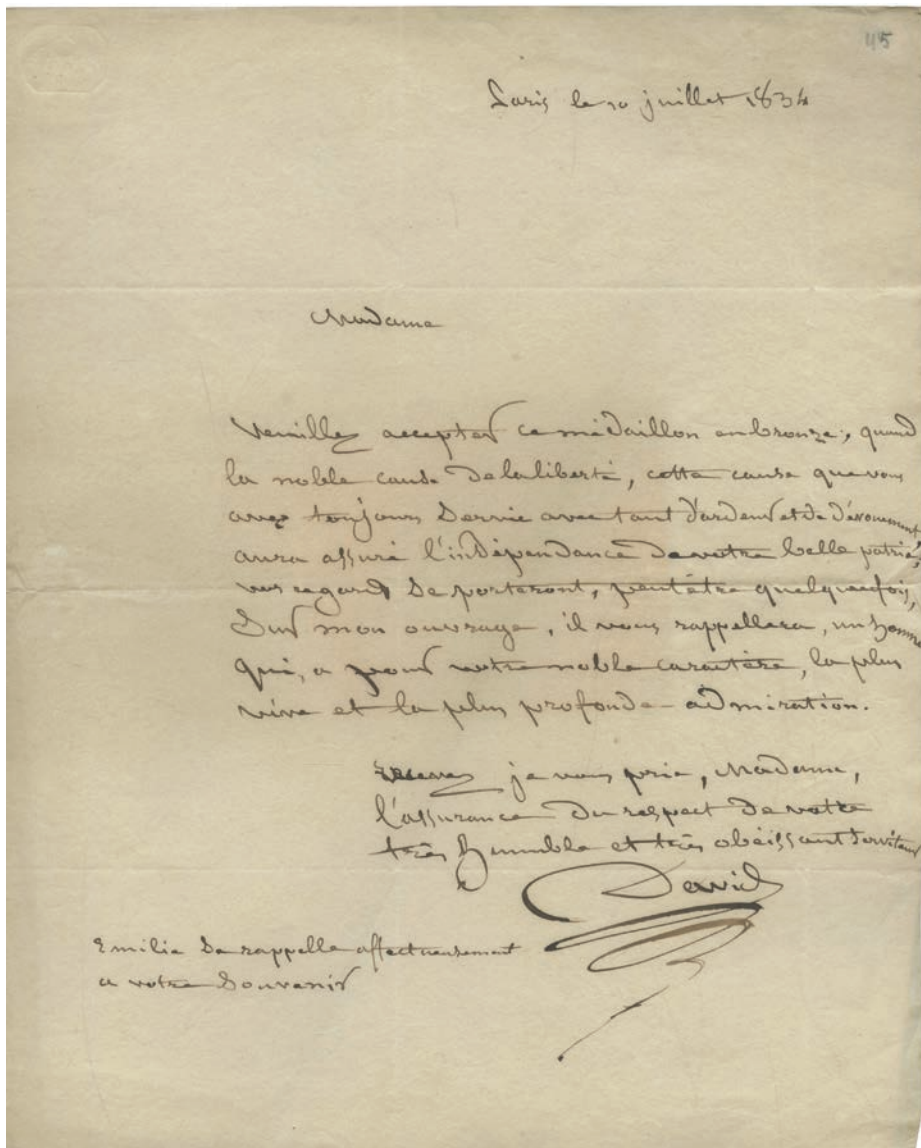 45
Paris le 10 juillet 1834
Madame
Veuillez accepter ce médaillon en bronze; quand
la noble cause de la liberté, cette cause que vous
avez toujours servie avec tant d'ardeur et de dévouement
aura assuré l'indépendance de votre belle patrie,
vos regards se porteront, peut être quelquefois,
sur mon ouvrage, il vous rappellera, un homme
qui, a pour votre noble caractère, la plus
vive et la plus profonde admiration.
recevez je vous prie, Madame,
l'assurance du respect de votre
très humble et très obéissant serviteur
David
Emilie se rappelle affectueusement
a votre souvenir